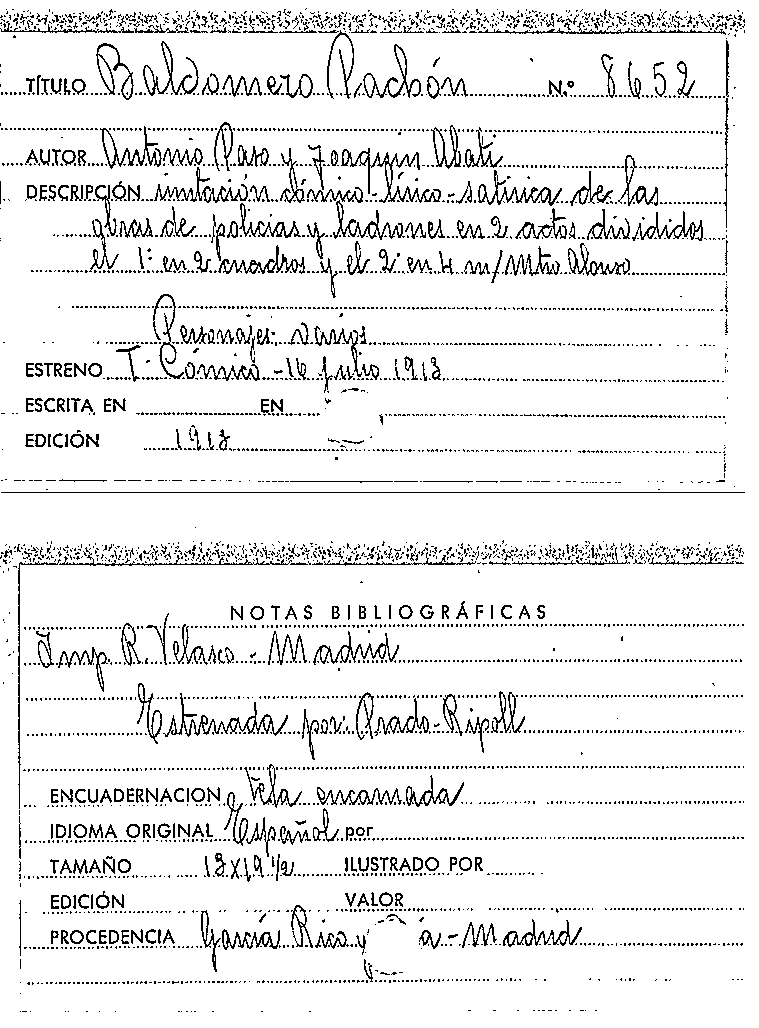 TÍTULO Baldomero Pachón N.º 8652
AUTOR Antonio Paso y Joaquin Abati
DESCRIPCIÓN imitación cómico-lírico-satírica de las
obras de policias y ladrones en 2 actos divididos
el 1º en 2 cuadros y el 2º en 4 m/Mtro Alonso
Personajes: varios
ESTRENO T. Cómico - 16 julio 1913
ESCRITA EN EN
EDICIÓN 1913
NOTAS BIBLIOGRÁFICAS
Imp. R. Velasco - Madrid
Estrenada por: Prado-Ripoll
ENCUADERNACION Tela encarnada
IDIOMA ORIGINAL Español por
TAMAÑO 13x19 1/2 ILUSTRADO POR
EDICIÓN VALOR
PROCEDENCIA García Rico y a - Madrid